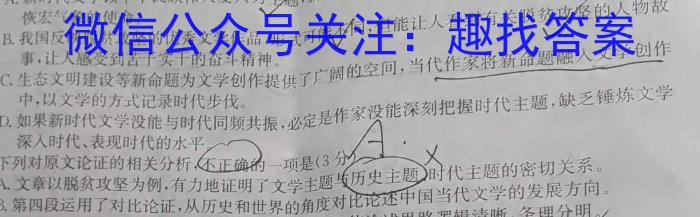 恢宏气
微信公众号关注：趣找答案
B. 我国反 能让人 有关脱贫攻坚的人物故
事，让人感受到苦干实干的奋斗精神。
C. 生态文明建设等新命题为文学创作提供了广阔的空间，当代作家将新命题融入文学创作
中，以文学的方式记录时代步伐。
D. 如果新时代文学没能与时代同频共振，必定是作家没能深刻把握时代主题，缺乏锤炼文学
深入时代、表现时代的水平
A.
下列对原文论证的相关分析，不正确的一项是(3分
A. 文章以脱贫攻坚为例，有力地证明了文学主题与历史主题、时代主题的密切关系。
B. 第四段运用了对比论证，从历史和世界的角度对比论述中国当代文学的发展方向。
思路逻辑清晰，条理分明